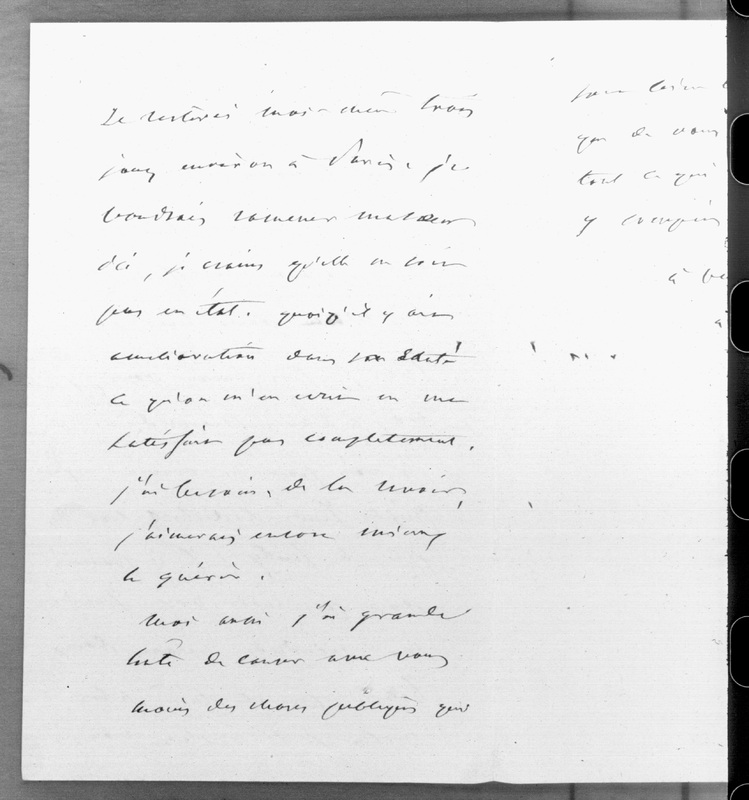 Je resterai moi-même trois
jours environ à Paris. je
voudrais ramener ma sœur
ici, je crains qu'elle ne soit
pas en état. quoiqu'il y ait
amélioration dans son état
ce qu'on m'en écrit ne me
satisfait pas complètement.
j'ai besoin de la revoir,
j'aimerais encore mieux
la guérir.
moi aussi j'ai grande
hâte de causer avec vous
moins des choses publiques qui
que de vous
tout ce qui
y
à